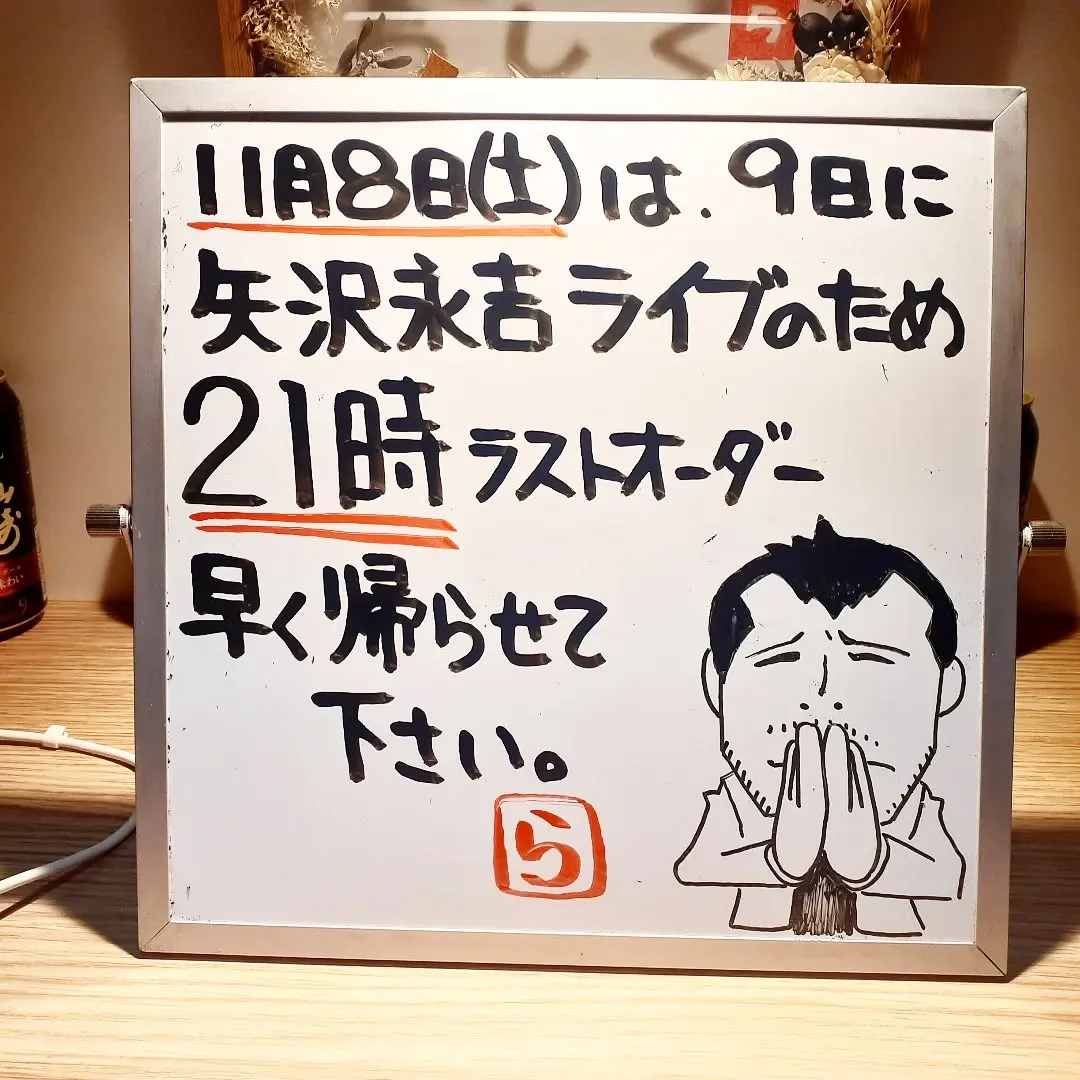 らしく
ら
11月8日(土)は、9日に
矢沢永吉ライブのため
21時ラストオーダー
早く帰らせて
下さい。
ら